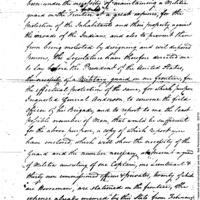 been under the necessity of maintaining a Militia
guard on the frontier at a great expence, for the
protection of the Inhabitants and their property against
the inroads of the Indians, and also to prevent them
from being molested by designing and evil disposed
persons. The Legislature have therefore desired me
to lay before the President of the United States
the necessity of a Military guard on our frontier, for
the effectual protection of the same, for which purpose
I requested General Anderson, to convene the field
officers of his Brigade, and to report to me the least
possible number of Men, that would be sufficient
for the above purpose, a copy of which report you
have enclosed, which will shew the necessity of the
guard and the number necessary, a guard
of Militia consisting of one Captain, one Lieutenant &
thirty non commissioned officers & privates, twenty of which
are Horsemen, are stationed on the frontier. The
expence already incurred by this State from February